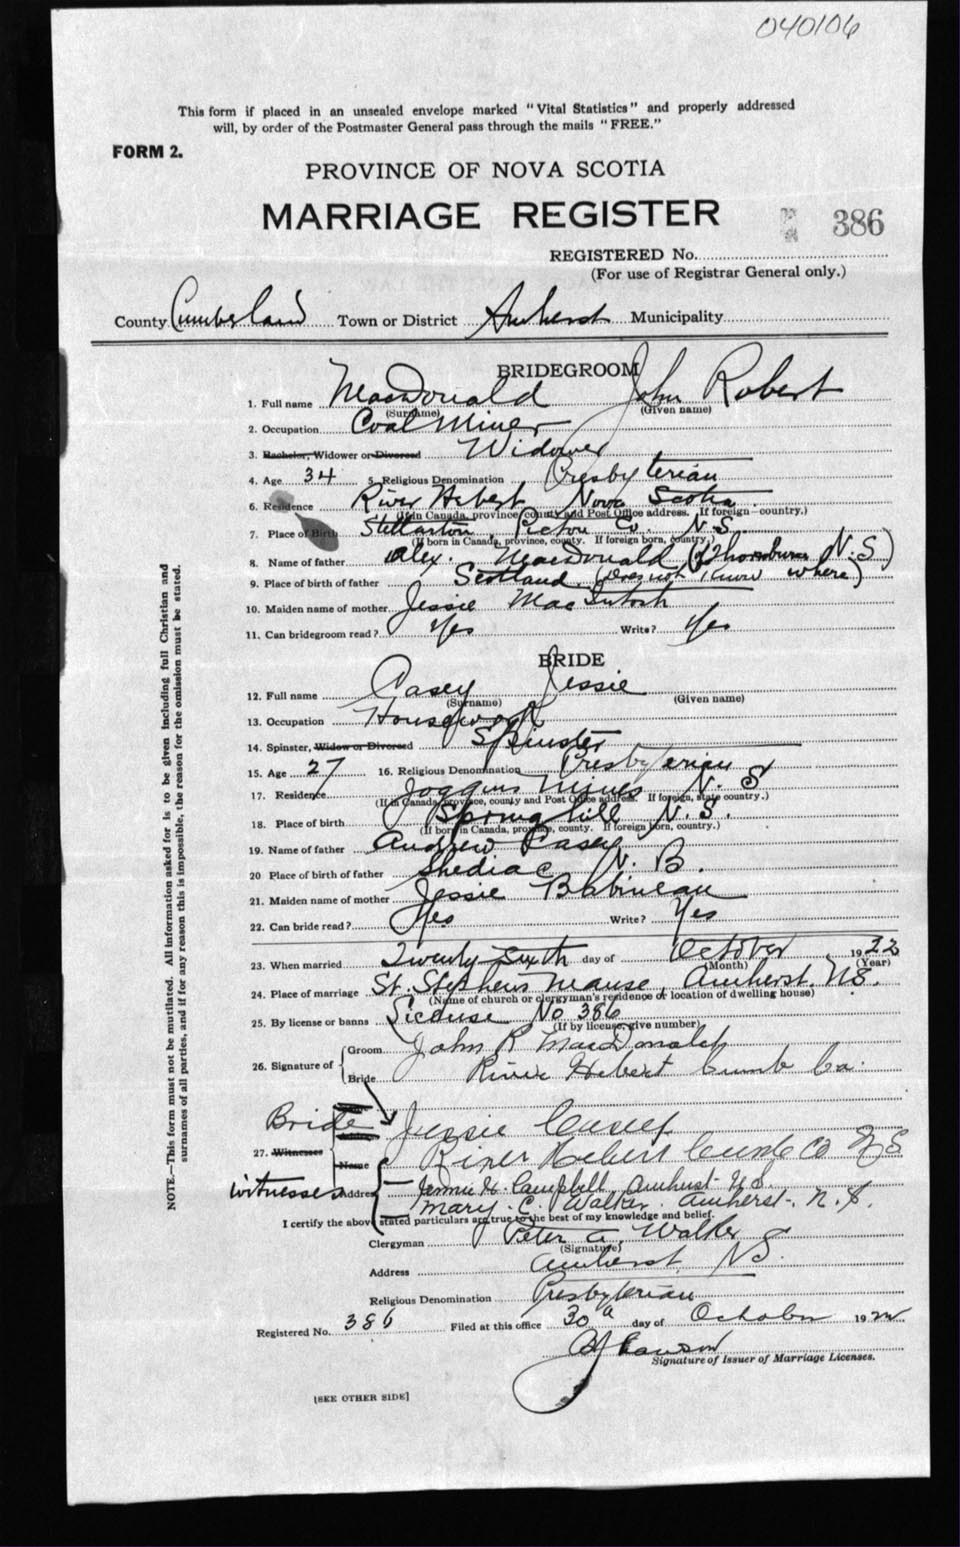 040106
This form if placed in an unsealed envelope marked "Vital Statistics" and properly addressed
will, by order of the Postmaster General pass through the mails "FREE."
FORM 2.
PROVINCE OF NOVA SCOTIA
MARRIAGE REGISTER
386
REGISTERED No.
(For use of Registrar General only.)
County Cumberland Town or District Amherst Municipality
BRIDEGROOM
1. Full name MacDonald John Robert
(Surname) (Given name)
2. Occupation Coal Miner
3. Bachelor, Widower or Divorced Widower
4. Age 34 5. Religious Denomination Presbyterian
6. Residence River Hebert Nova Scotia
(If in Canada, province, county and Post Office address. If foreign country.)
7. Place of Birth Stellarton Pictou Co. N.S.
(If born in Canada, province, county. If foreign born, country.)
8. Name of father Alex. MacDonald (of Thornburn N.S)
9. Place of birth of father Scotland (Does not know where)
10. Maiden name of mother Jessie MacIntosh
11. Can bridegroom read? Yes Write? Yes
BRIDE
12. Full name Casey Jessie
(Surname) (Given name)
13. Occupation Housework
14. Spinster, Widow or Divorced Spinster
15. Age 27 16. Religious Denomination Presbyterian
17. Residence Joggins Mines N. S
(If in Canada, province, county and Post Office address. If foreign, state country.)
18. Place of birth Springhill N. S.
(If born in Canada, province, county. If foreign born, country.)
19. Name of father Andrew Casey
20 Place of birth of father Shediac N. B.
21. Maiden name of mother Jessie Babineau
22. Can bride read? Yes Write? Yes
23. When married Twenty Sixth day of October 1922
(Month) (Year)
24. Place of marriage St. Stephens Manse, Amherst. N.S.
(Name of church or clergyman's residence or location of dwelling house)
25. By license or banns License No 386
(If by license, give number)
26. Signature of Groom John R MacDonald
Bride River Hebert Cumb Co.
Bride Jessie Casey
27. Witnesses
Name River Hebert Cumb Co N S
witnesses Address Jennie H. Campbell, Amherst N.S.
Mary. C. Walker. Amherst. N. S.
I certify the above stated particulars are true to the best of my knowledge and belief.
Clergyman Peter A. Walker
(Signature)
Address Amherst, N.S.
Religious Denomination Presbyterian
Registered No. 386 Filed at this office 30 day of October 1922
Signature of Issuer of Marriage Licenses.
[SEE OTHER SIDE]
NOTE.—This form must not be mutilated. All information asked for is to be given including full Christian and
surnames of all parties, and if for any reason this is impossible, the reason for the omission must be stated.